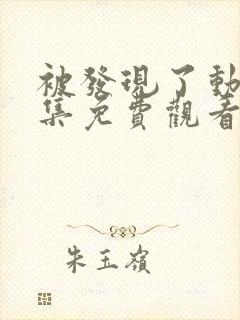 被發現了動
集免費觀看
朱玉嶺